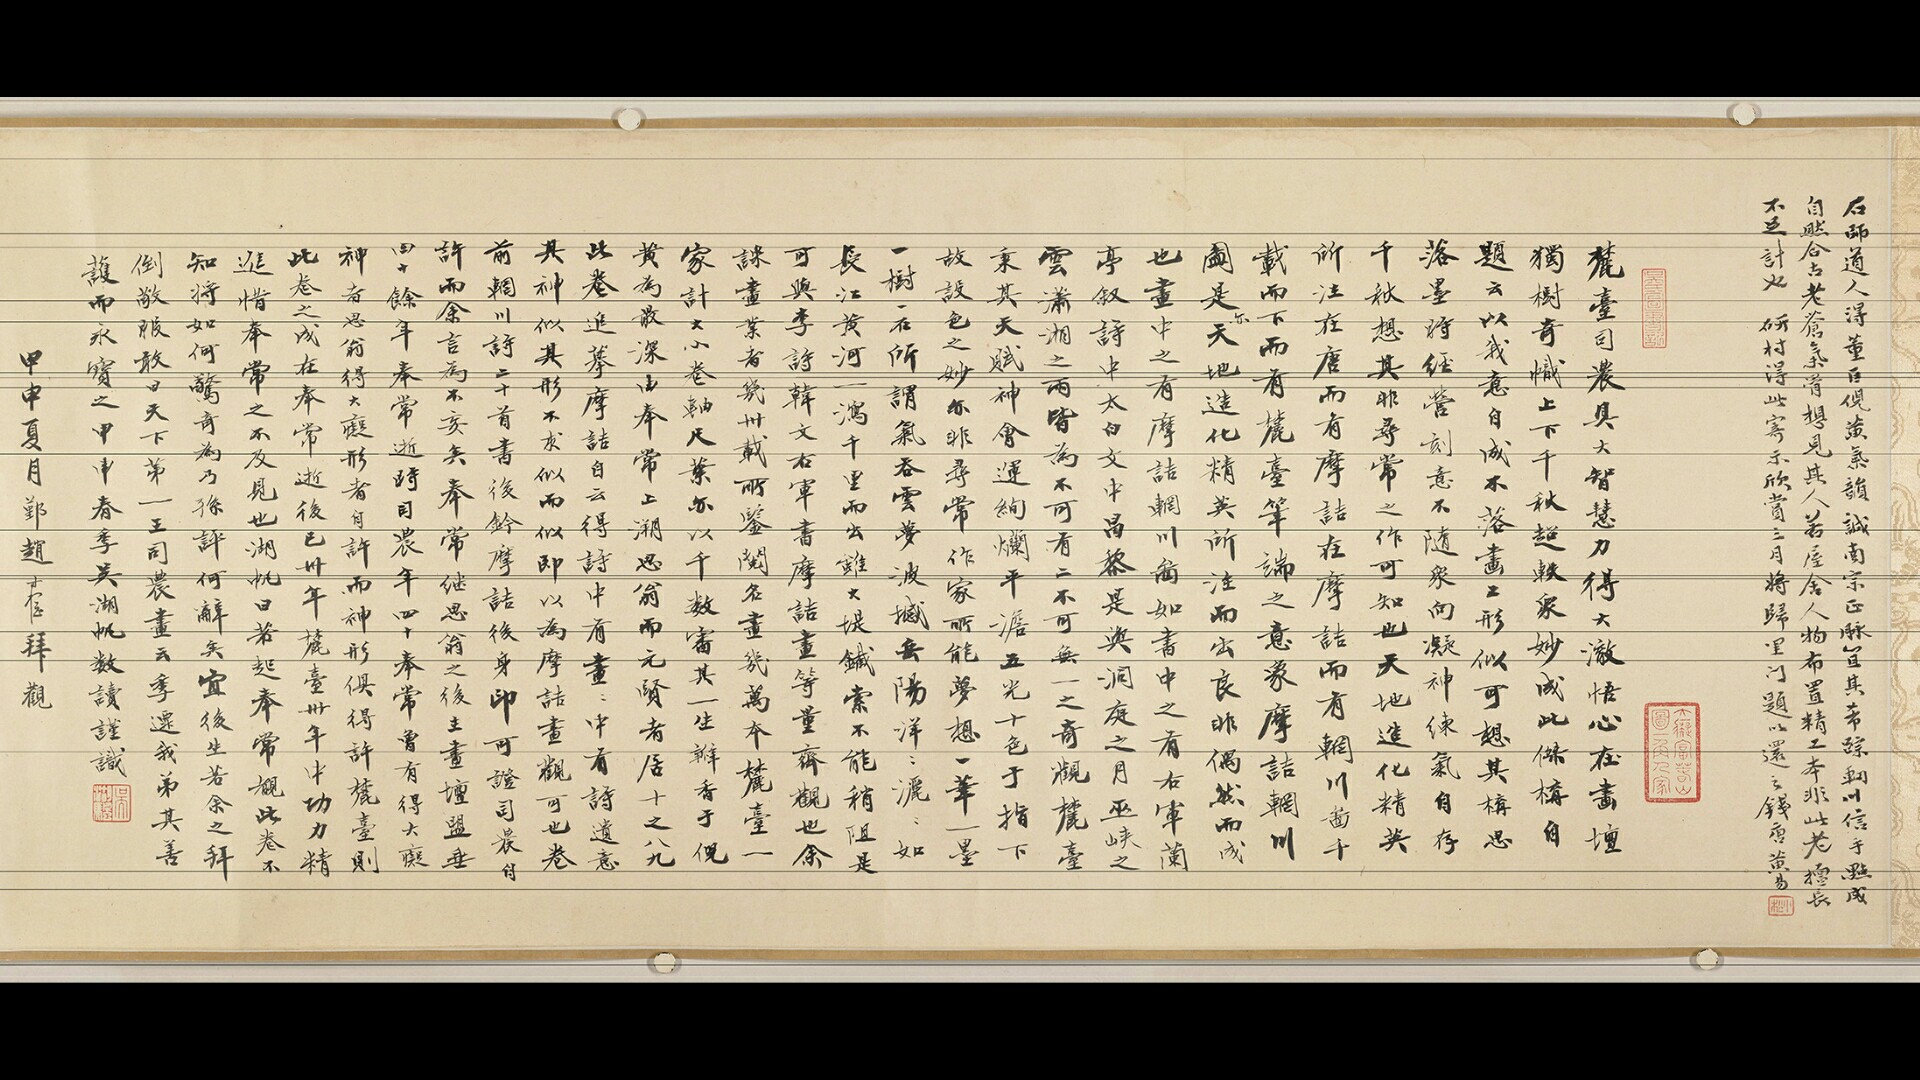 石師道人得董巨倪黃氣韻誠南宗正脉宜其希踪輞川信手點成
自然合古老蒼氣骨想見其人若屋舍人物布置精工本非此老擅長
不足計也 研村得此寄示欣賞三月將歸里門題以還之錢唐黃易
麓臺司農具大智慧力得大澈悟心在畫壇
獨樹奇幟上下千秋超軼眾妙成此傑構自
題云以我意自成不落畫工形似可想其構思
落墨時經營刻意不隨眾向凝神練氣自存
千秋想其非尋常之作可知也天地造化精英
所注在唐而有摩詰在摩詰而有輞川圖千
載而下而有麓臺筆端之意象摩詰輞川
圖是亦天地造化精英所注而出良非偶然而成
也畫中之有摩詰輞川圖如書中之有右軍蘭
亭叙詩中太白文中昌黎是與洞庭之月巫峽之
雲瀟湘之雨皆為不可有二不可無一之奇觀麓臺
秉其天賦神會運絢爛平澹五光十色于指下
故設色之妙亦非尋常作家所能夢想一筆一墨
一樹一石所謂氣吞雲夢波撼岳陽洋洋灑灑如
長江黃河一瀉千里而出雖大堤鐵索不能稍阻是
可與李詩韓文右軍書摩詰畫等量齊觀也余
謀畫業者幾卅載所鑒閱名畫幾萬本麓臺一
家計大小卷軸尺葉亦以千數審其一生瓣香于倪
黃為最深由奉常上溯思翁而元賢者居十之八九
此卷追摹摩詰自云得詩中有畫畫中有詩遺意
其神似其形不求似而似即以為摩詰畫觀可也卷
前輞川詩二十首書後鈐摩詰後身印可證司農自
許而余言為不妄矣奉常繼思翁之後主畫壇盟垂
四十餘年奉常逝時司農年四十奉常曾有得大癡
神者思翁得大癡形者自許而神形俱得許麓臺則
此卷之成在奉常逝後已卅年麓臺卅年中功力精
進惜奉常之不及見也湖帆曰若起奉常觀此卷不
知將如何驚奇為乃孫評何辭矣宜後生若余之拜
倒敬服敢曰天下第一王司農畫云季遷我弟其善
護而永寶之甲申春季吳湖帆数讀謹識
甲申夏月鄞趙拜觀